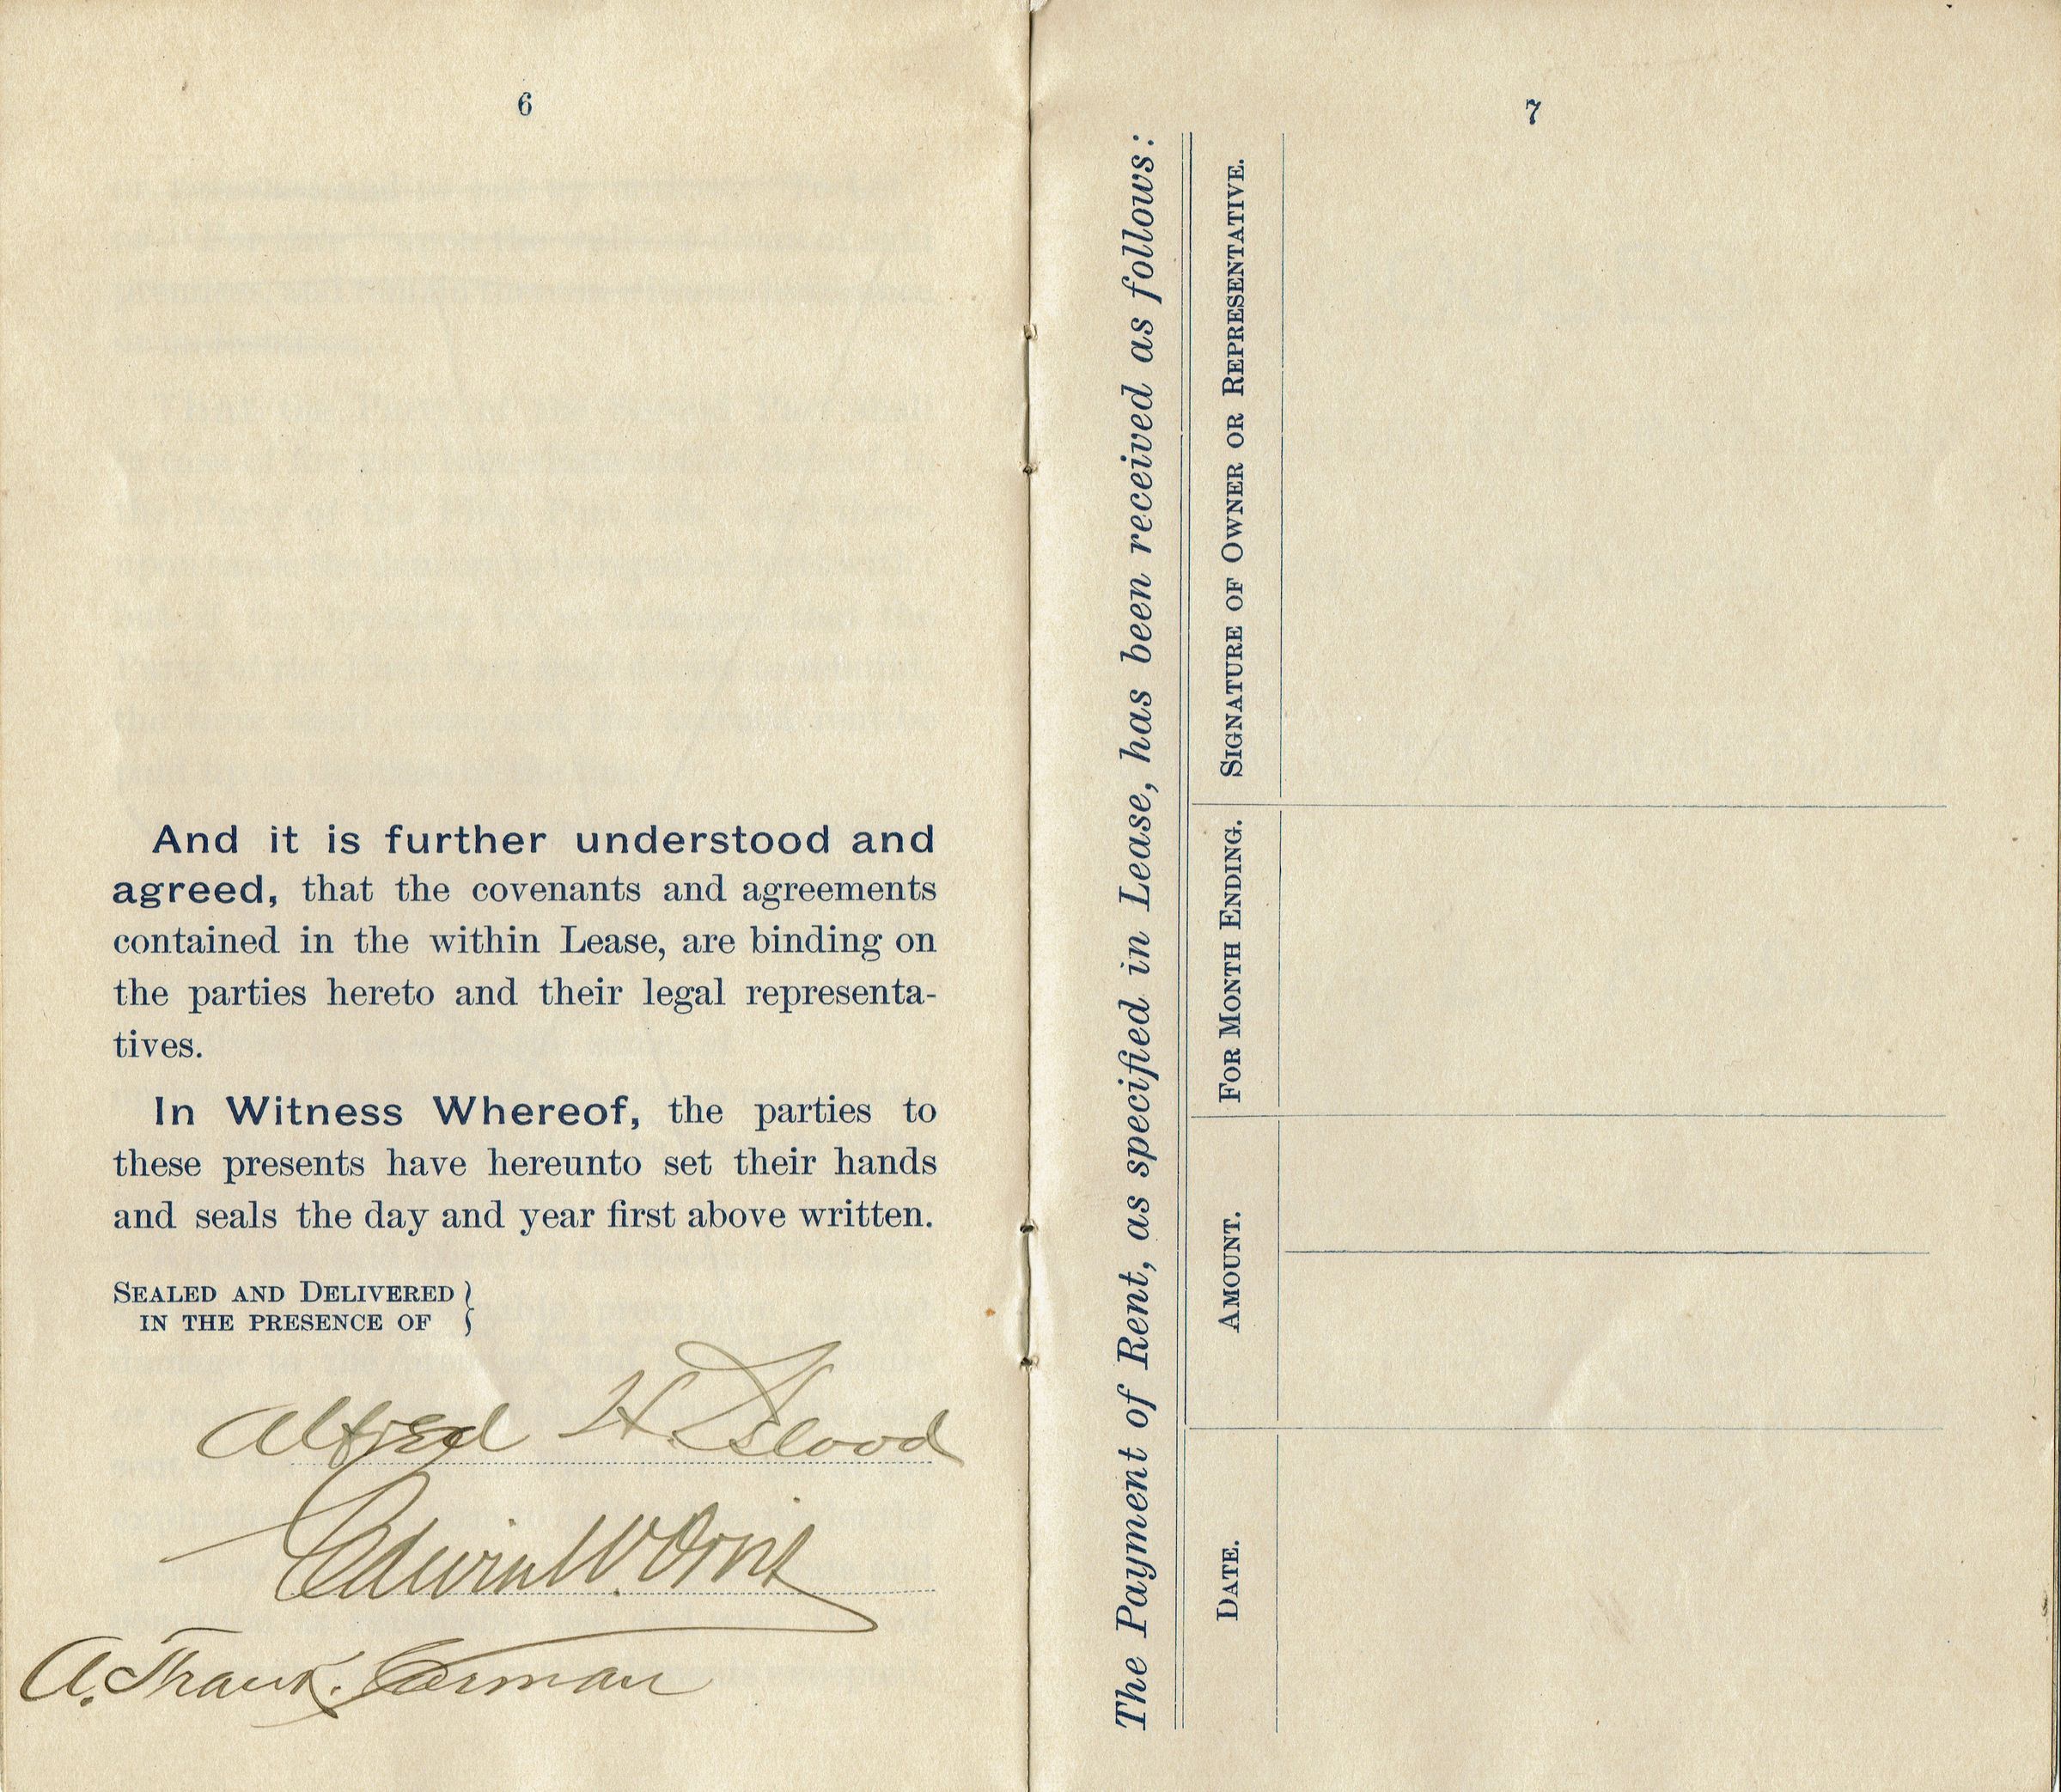 6
And it is further understood and
agreed, that the covenants and agreements
contained in the within Lease, are binding on
the parties hereto and their legal representa-
tives.
In Witness Whereof, the parties to
these presents have hereunto set their hands
and seals the day and year first above written.
SEALED AND DELIVERED }
IN THE PRESENCE OF
Alfred H.
Edwin W.
A. Frank
7
The Payment of Rent, as specified in Lease, has been received as follows:
DATE. AMOUNT. FOR MONTH ENDING. SIGNATURE OF OWNER OR REPRESENTATIVE.